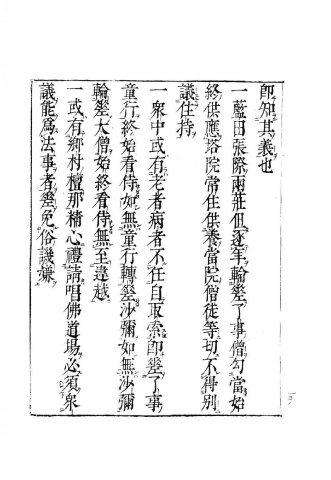 即知其義也
一藍田張際兩莊但逐年輪差了事僧勾當始
終供應塔院常住供養當院僧徒等切不得別
議住持
一衆中或有老者病者不任自取索即差了事
童行終始看侍如無童行轉差沙彌如無沙彌
輪差大僧始終看侍無至違越
一或有鄉村檀那精心禮請唱佛道場必須衆
議能爲法事者差免俗譏嫌